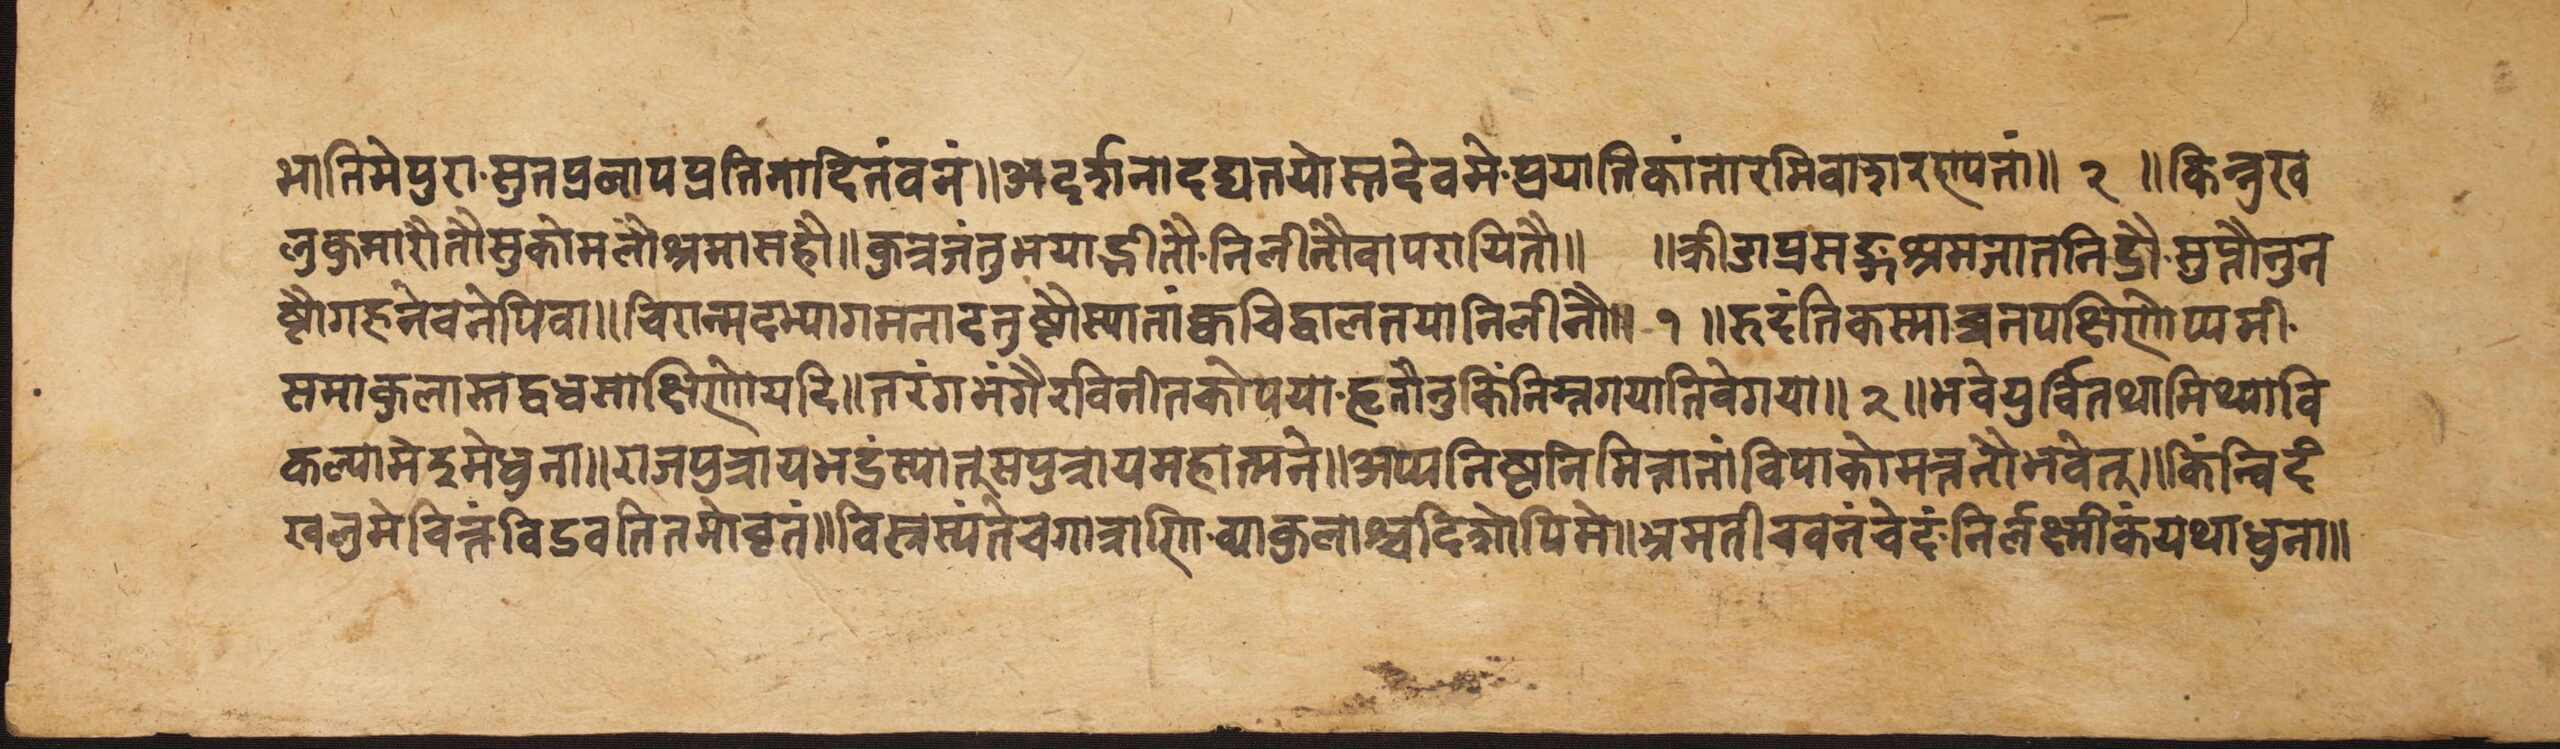 भातिमेपुरा·सुतप्रलापप्रतिनादितंवनं॥अदर्शनादद्यतयोस्तदेवमे·प्रयातिकांतारमिवाशरण्यतां॥ २ ॥किन्नुख
लुकुमारौतौसुकोमलौश्रमासहौ॥कुत्रजंतुभयाद्भीतौ·निलीनौवापरायितौ॥ ॥क्रीडाप्रसङ्गश्रमजातनिद्रौ·सुप्तौनुन
ष्टौगहनेवनेपिवा॥चिरान्मदभ्यागमनादतुष्टौस्यातांक्वचिद्वालतयानिलीनौ॥ १ ॥रुदंतिकस्माच्चनपक्षिणोप्यमी·
समाकुलास्तद्वधसाक्षिणोयदि॥तरंगभंगैरविनीतकोपया·हृतौनुकिंनिम्नगयातिवेगया॥ २ ॥भवेयुर्वितथामिथ्यावि
कल्पामेइमेधुना॥राजपुत्रायभद्रंस्यात्सपुत्रायमहात्मने॥अप्यनिष्टनिमित्तानांविपाकोमत्तनौभवेत्॥किंन्विदं
खलुमेचित्तंविद्रवतितमोवृतं॥विस्त्रस्यंतेचगात्राणि·व्याकुलाश्चदिशोपिमे॥भ्रमतीववनंचेदं·निर्लक्ष्मीकंयथाधुना॥